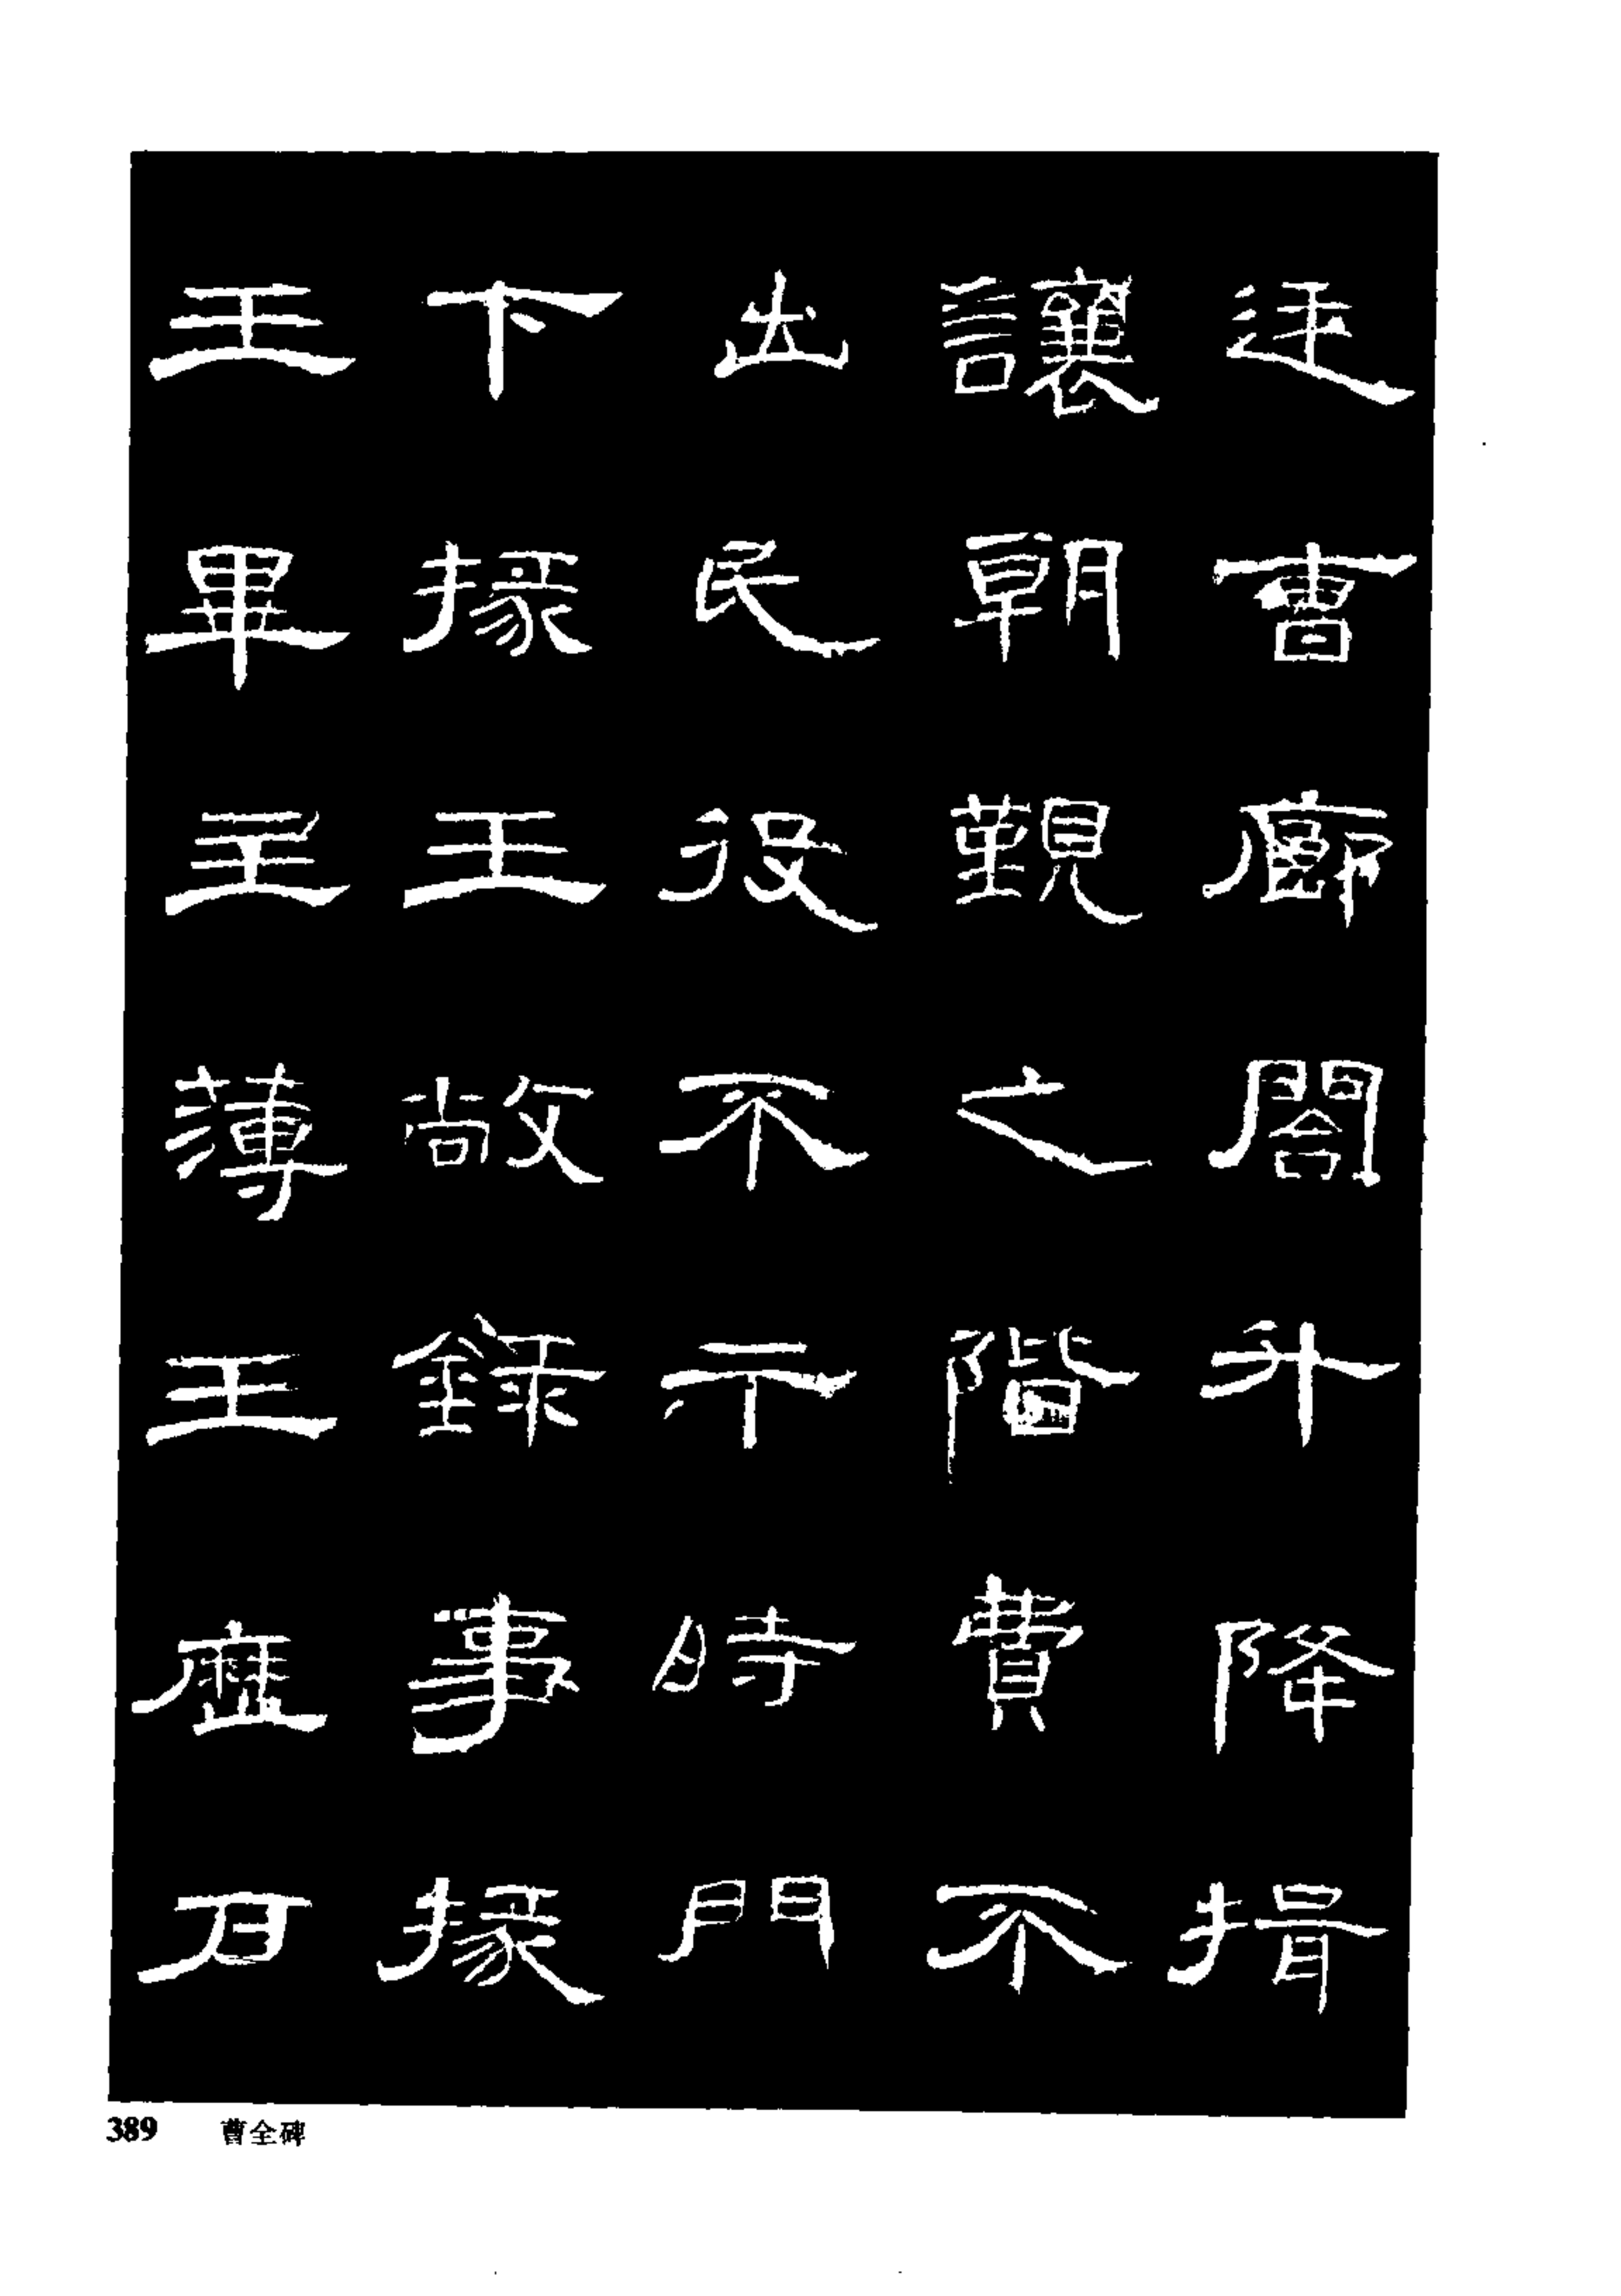 廷曹廊閣升降揖
讓朝覲之階費不
出民役不干時門
下掾王敞錄事掾
王畢主薄王歷戶
389 曹全碑